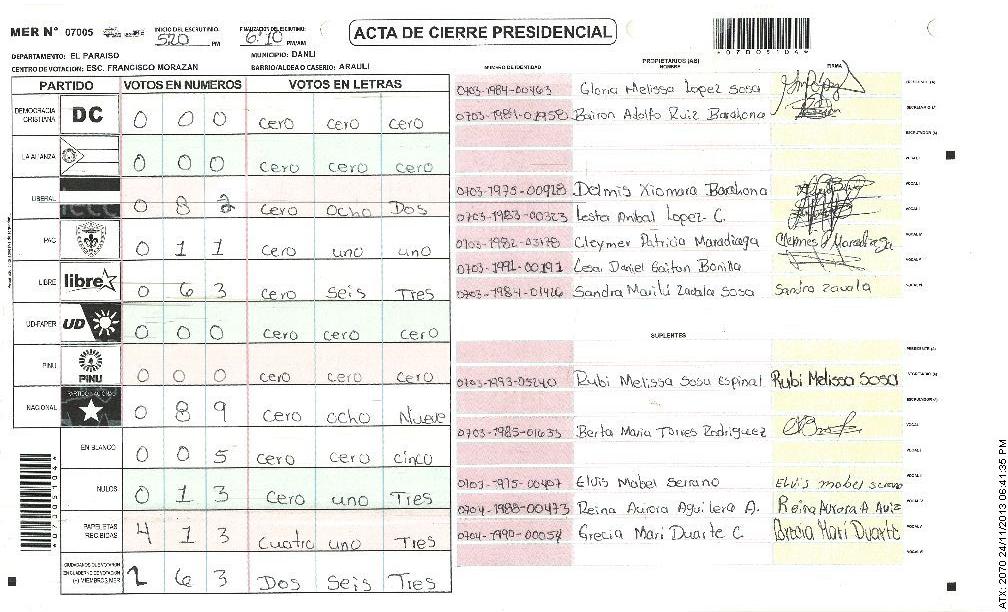 MER N° 07005
INICIO DEL ESCRUTINIO. 520 PM
FINALIZACION DEL ESCRUTINIO: 6:10 PM/AM
ACTA DE CIERRE PRESIDENCIAL
*07005104*
DEPARTAMENTO: EL PARAISO
MUNICIPIO: DANLI
CENTRO DE VOTACION: ESC. FRANCISCO MORAZAN
BARRIO/ALDEA O CASERIO: ARAULI
PARTIDO VOTOS EN NUMEROS VOTOS EN LETRAS
DEMOCRACIA CRISTIANA DC 0 0 0 cero cero cero
LA ALIANZA 0 0 0 cero cero cero
LIBERAL 0 8 2 cero ocho Dos
PAC 0 1 1 cero uno uno
LIBRE libre 0 6 3 cero Seis Tres
UD-FAPER UD 0 0 0 cero cero cero
PINU PINU 0 0 0 cero cero cero
NACIONAL PARTIDO NACIONAL 0 8 9 cero ocho Nueve
EN BLANCO 0 0 5 cero cero cinco
NULOS 0 1 3 Cero uno Tres
PAPELETAS RECIBIDAS 4 1 3 Cuatro uno Tres
CIUDADANOS QUE VOTARON EN CUADERNO DE VOTACION (+) MIEMBROS MER 2 6 3 Dos Seis Tres
*07005104*
NUMERO DE IDENTIDAD PROPIETARIOS (AS) NOMBRE FIRMA
0703-1984-00463 Gloria Melissa Lopez Sosa PRESIDENTE (A)
0703-1981-01958 Bairon Adolfo Ruiz Barahona SECRETARIO (A)
ESCRUTADOR (A)
VOCAL I
0703-1975-00928 Dolmis Xiomara Barahona VOCAL
0703-1983-00323 Lester Anibal Lopez C. VOCAL
0703-1982-03178 Cleymer Patricia Maradiaga VOCAL
0703-1991-00191 Lesa Daniel Gaitan Bonilla VOCAL
0703-1984-01426 Sandra Marilú Zavala Sosa Sandra Zavala VOCAL
SUPLENTES
PRESIDENTE (A)
0703-1993-05240 Rubi Melissa Sosa Espinal Rubi Melissa Sosa SECRETARIO (A)
ESCRUTADOR (A)
0703-1985-01633 Berta Maria Torres Rodriguez VOCAL
VOCAL
0703-1975-00407 Elvis Mabel Serrano Elvis mabel serrano VOCAL
0704-1988-00473 Reina Aurora Aguilera A. Reina Aurora A VOCAL
0704-1990-00054 Grecia Mari Duarte C. Grecia Mari Duarte VOCAL
VOCAL
ATX: 2070 24/11/2013 06:41:35 PM